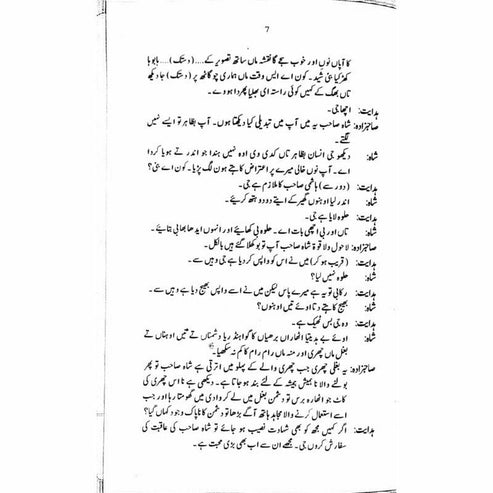 7
کا آہاں نوں اور خوب سجے گا نقشہ ماں ساتھ تصویر کے....(دستک).... بابو ہا
کھڑکیا بنی شید۔ کون اے ایس وقت ماں ہماری چوگاٹھ پر (دستک) جا دیکھ
تاں بھنگ کے کہیں کوئی راستہ ای بھلیا پھردا ہووے۔
ہدایت: اچھا جی۔
صاحبزادہ: شاہ صاحب یہ میں آپ میں تبدیلی کیا دیکھتا ہوں۔ آپ بظاہر تو ایسے نہیں
لگتے۔
شاہ: دیکھو جی انسان بظاہر تاں کدی وی اوہ نہیں ہندا جو اندر تے ہویا کردا
اے۔ آپ نوں خالی میرے پر اعتراض کاہتے ہون لگ پڑیا۔ کون اے بنی؟
ہدایت: (دور سے) ہاشمی صاحب کا ملازم ہے جی۔
شاہ: اندر لیا اوہنوں گھیر کے ایتھے دو دو ہتھ کریئے۔
ہدایت: حلوہ لایا ہے جی۔
شاہ: تاں اور بی اچھی بات اے۔ حلوہ بی کھائیے اور انہوں ایدھا بھابی بتائیے۔
صاحبزادہ: لاحول ولا قوۃ شاہ صاحب آپ تو بوکھلا گئے ہیں بالکل۔
ہدایت: (قریب ہو کر) میں نے اس کو واپس کر دیا ہے جی وہیں سے۔
شاہ: حلوہ نہیں لیا؟
ہدایت: رکابی تو یہ ہے میرے پاس لیکن میں نے اسے واپس بھیج دیا ہے وہیں سے۔
شاہ: بھیج کاہتے دتا اوئے توں اوہنوں؟
ہدایت: وہ جی بس ٹھیک ہے۔
شاہ: اوئے بے بدیتیا اٹھاراں برھیاں کا گوہانڈ ریا دشمناں تے تیں اوہناں تے
بغل ماں چھری اور منہ ماں رام رام کا کم نہ سکھیا۔
صاحبزادہ: یہ بغلی چھری جب چھری والے کے پہلو میں اترتی ہے شاہ صاحب تو پھر
بولنے والا نا ہمیش ہمیشہ کے لئے بند ہو جاتا ہے۔ دیکھی ہے نا اس چھری کی
کاٹ جو اٹھارہ برس تو دشمن بغل میں لے کر وادی میں گھومتا رہا اور جب
اسے استعمال کرنے والا مجاہد ہاتھ آگے بڑھا تو دشمن کا ناپاک وجود کہاں گیا؟
ہدایت: اگر کہیں مجھ کو بھی شہادت نصیب ہو جائے تو شاہ صاحب کی عاقبت کی
سفارش کروں جی۔ مجھے ان سے اب بھی بڑی محبت ہے۔